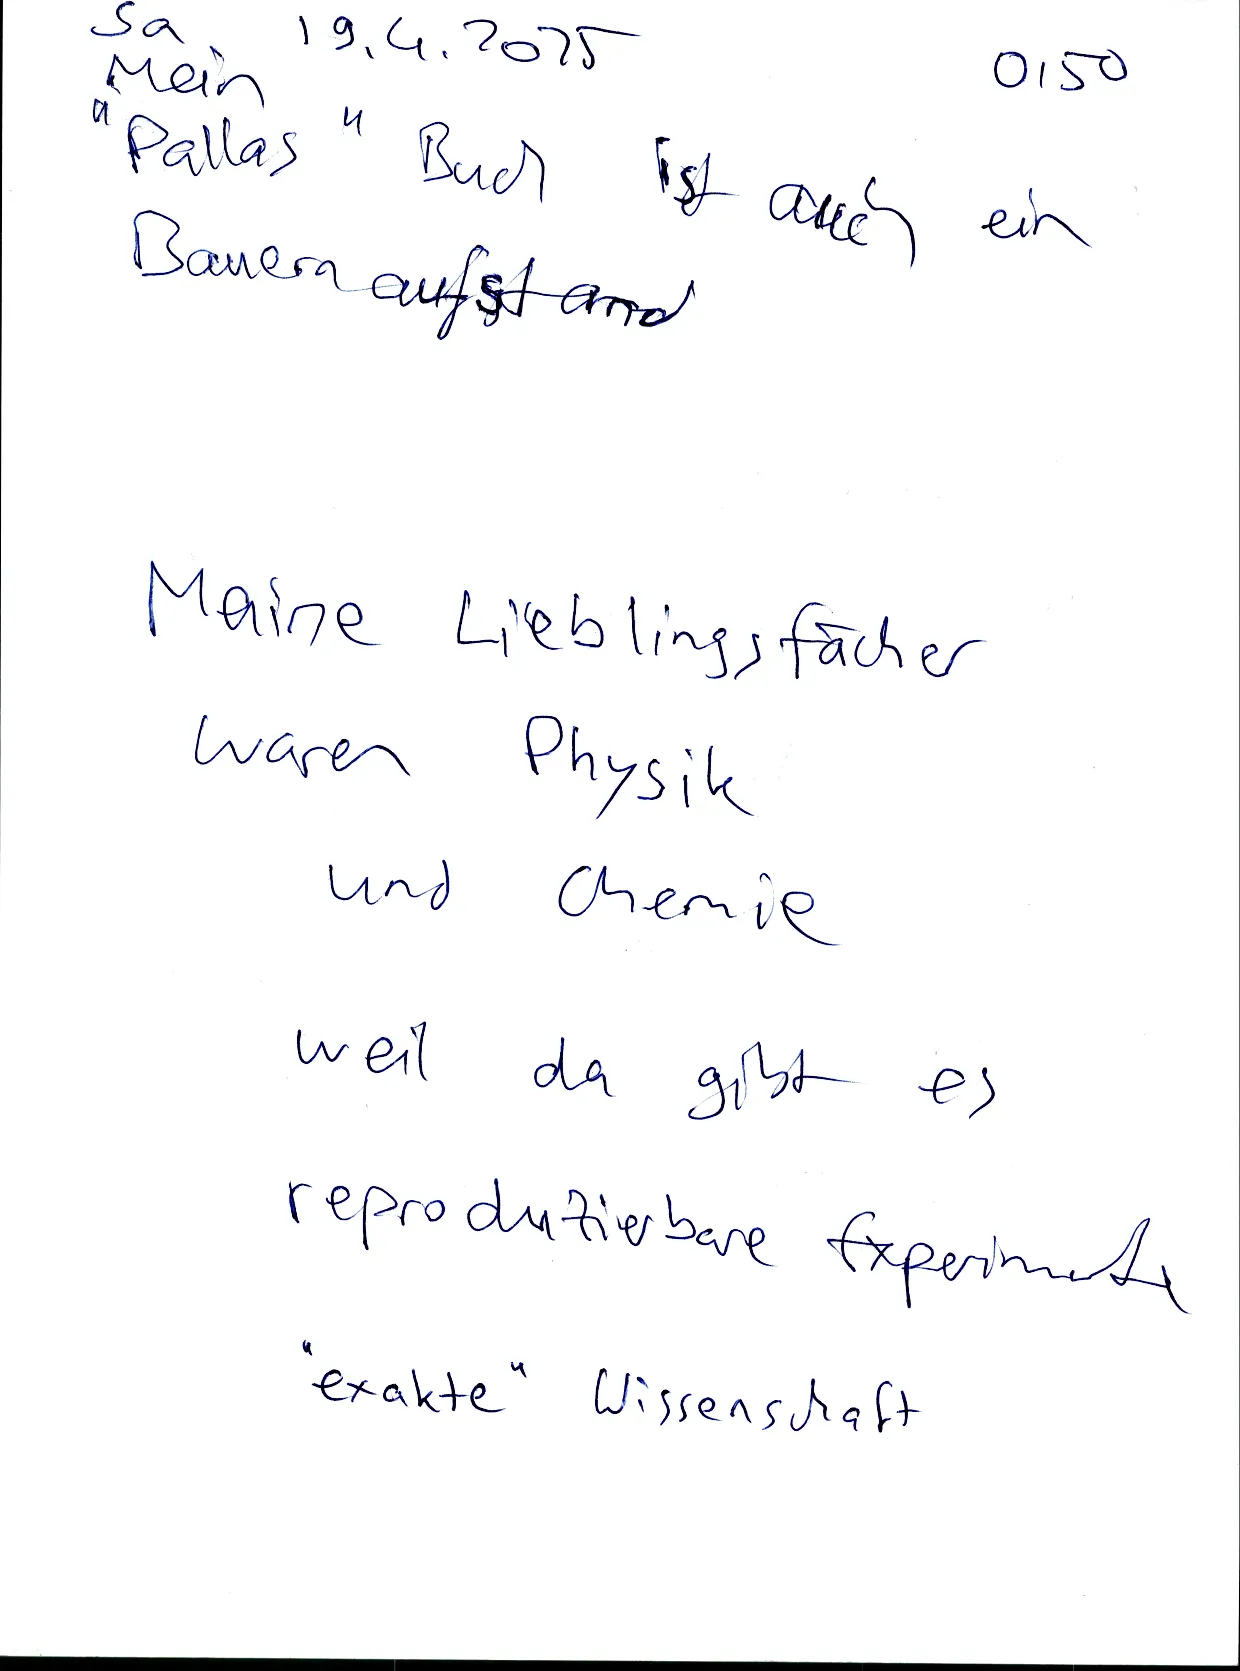 Sa 19.4.2025 0:50
Mein
"Pallas" Buch ist auch ein
Bauernaufstand
Meine Lieblingsfächer
waren Physik
und Chemie
weil da gibt es
reproduzierbare Experimente
"exakte" Wissenschaft